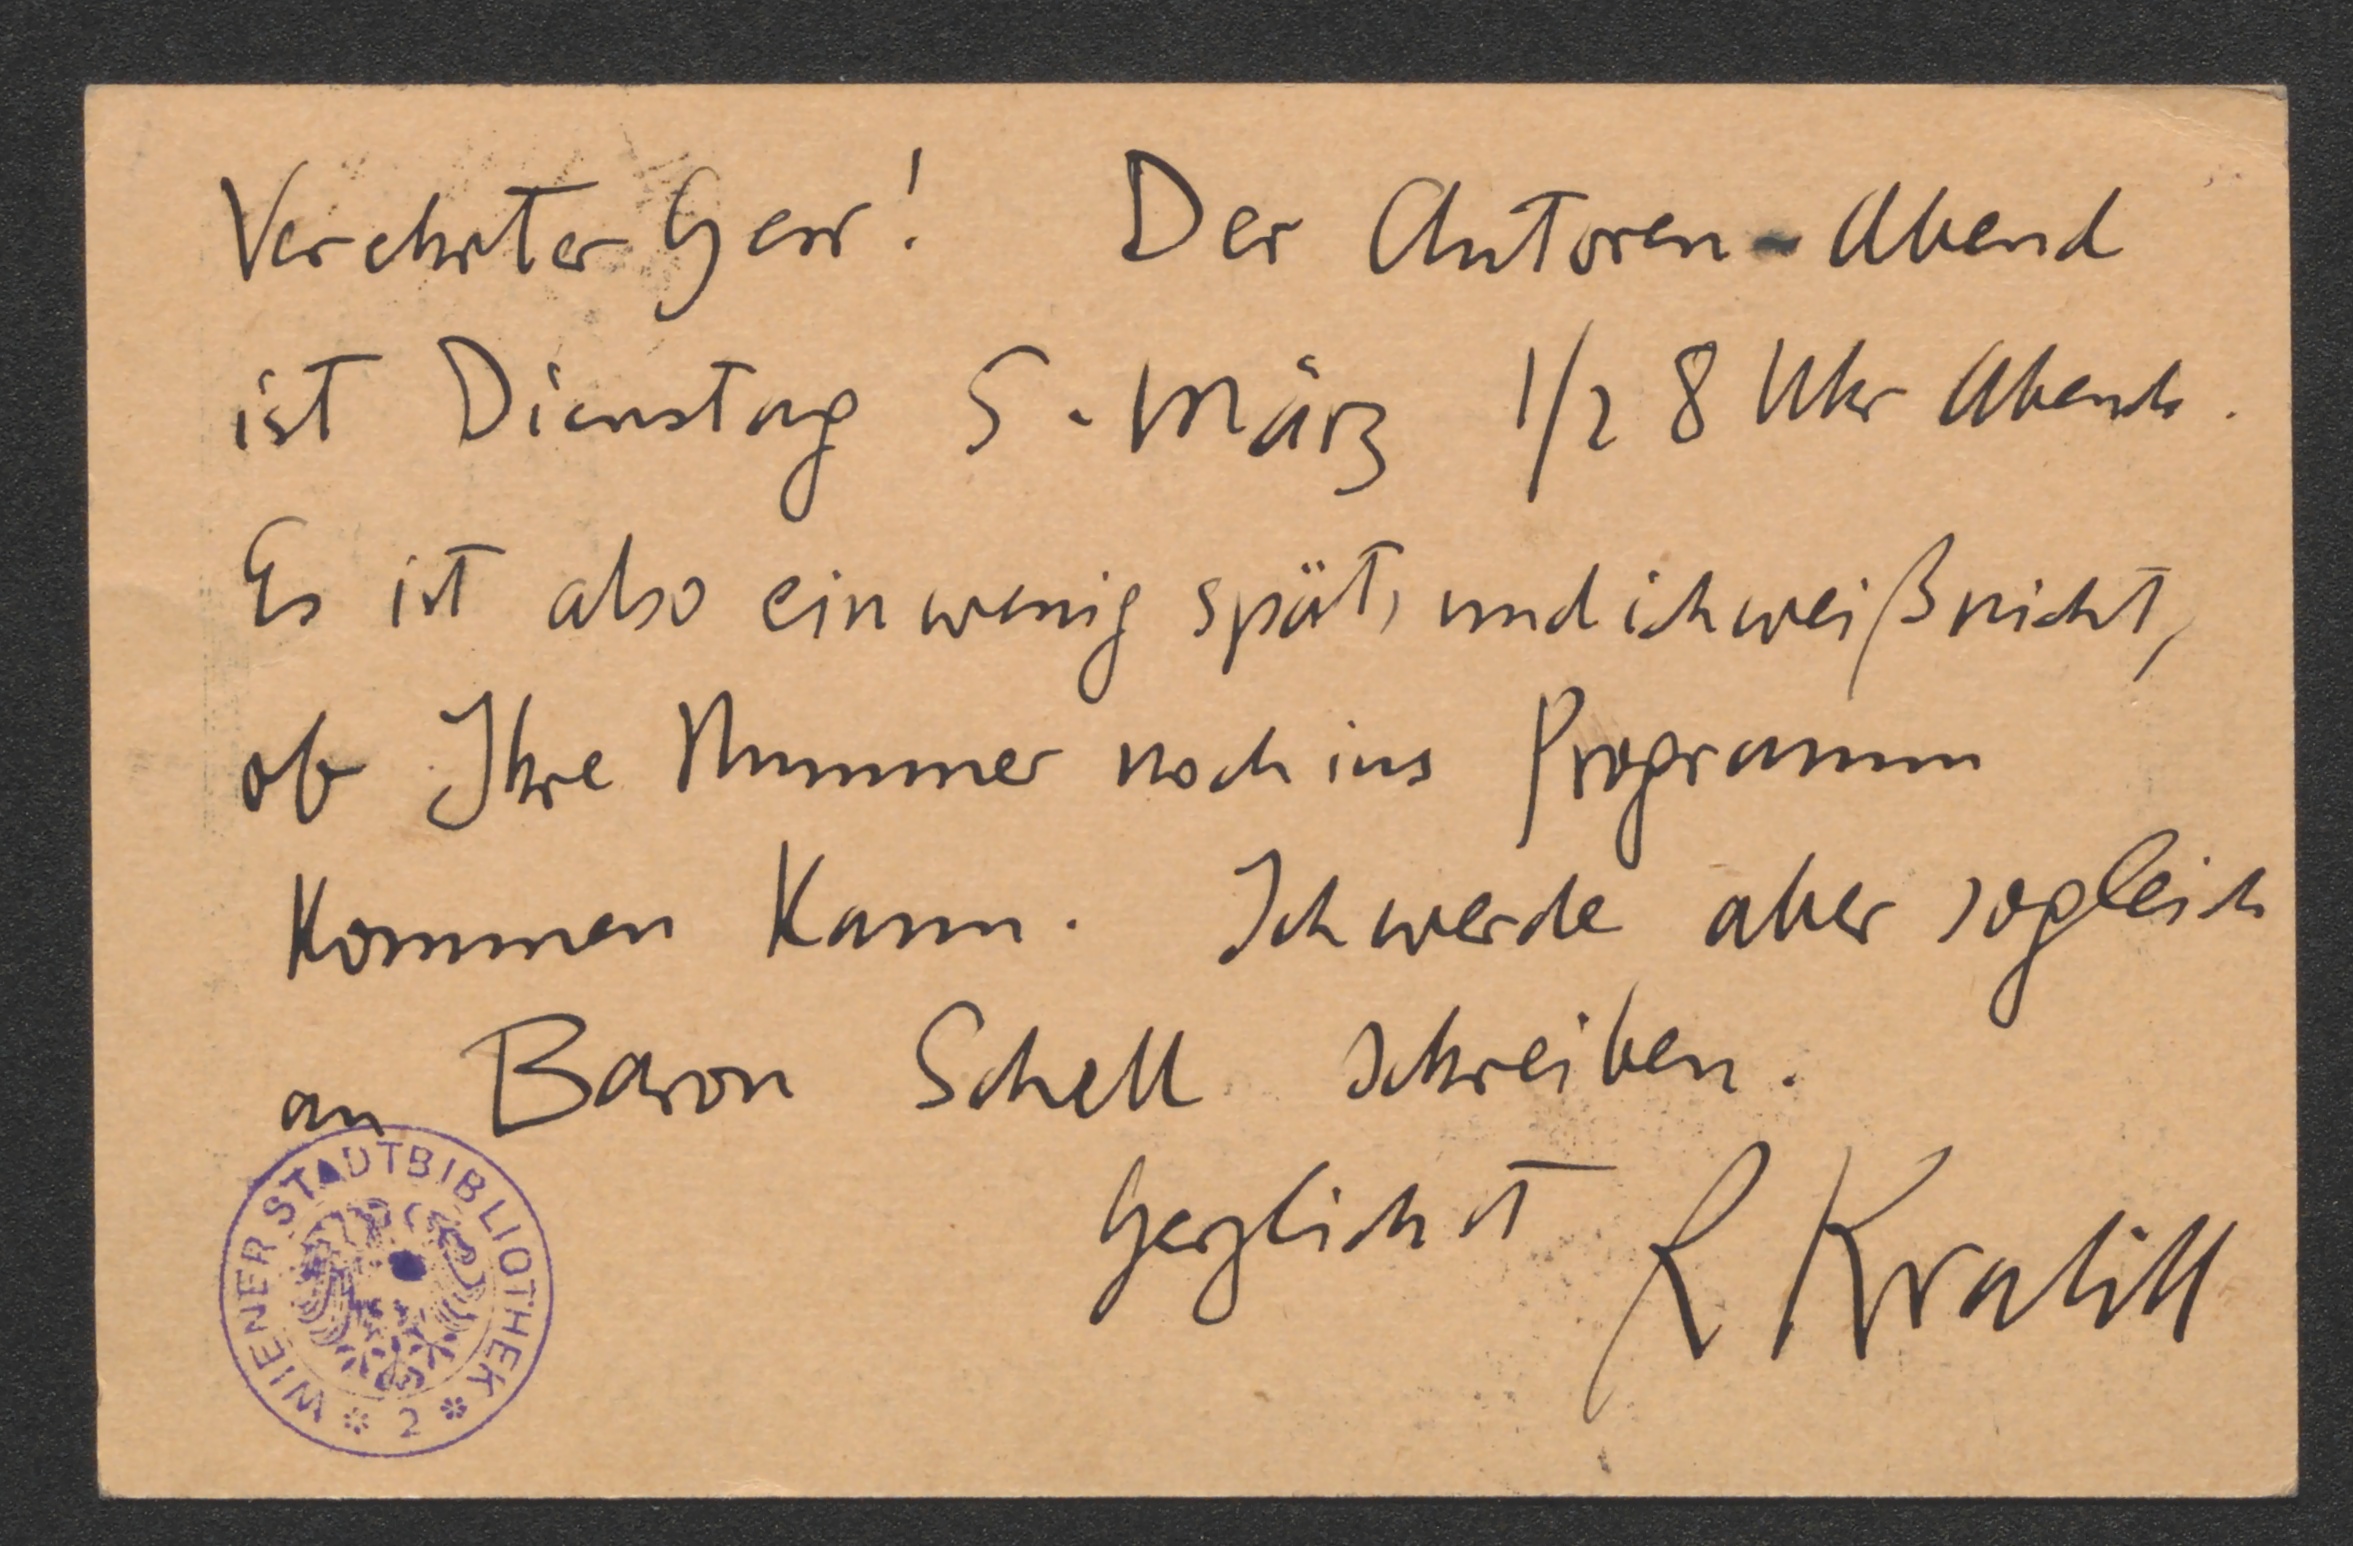 Verehrter Herr! Der Autoren-Abend
ist Dienstag 5. März 1/2 8 Uhr Abends.
Es ist also ein wenig spät, und ich weiß nicht,
ob Ihre Nummer noch ins Programm
Kommen Kann. Ich werde aber sogleich
an Baron Schell schreiben.
Herzlichst R Kralik
WIENER STADTBIBLIOTHEK
* 2 *